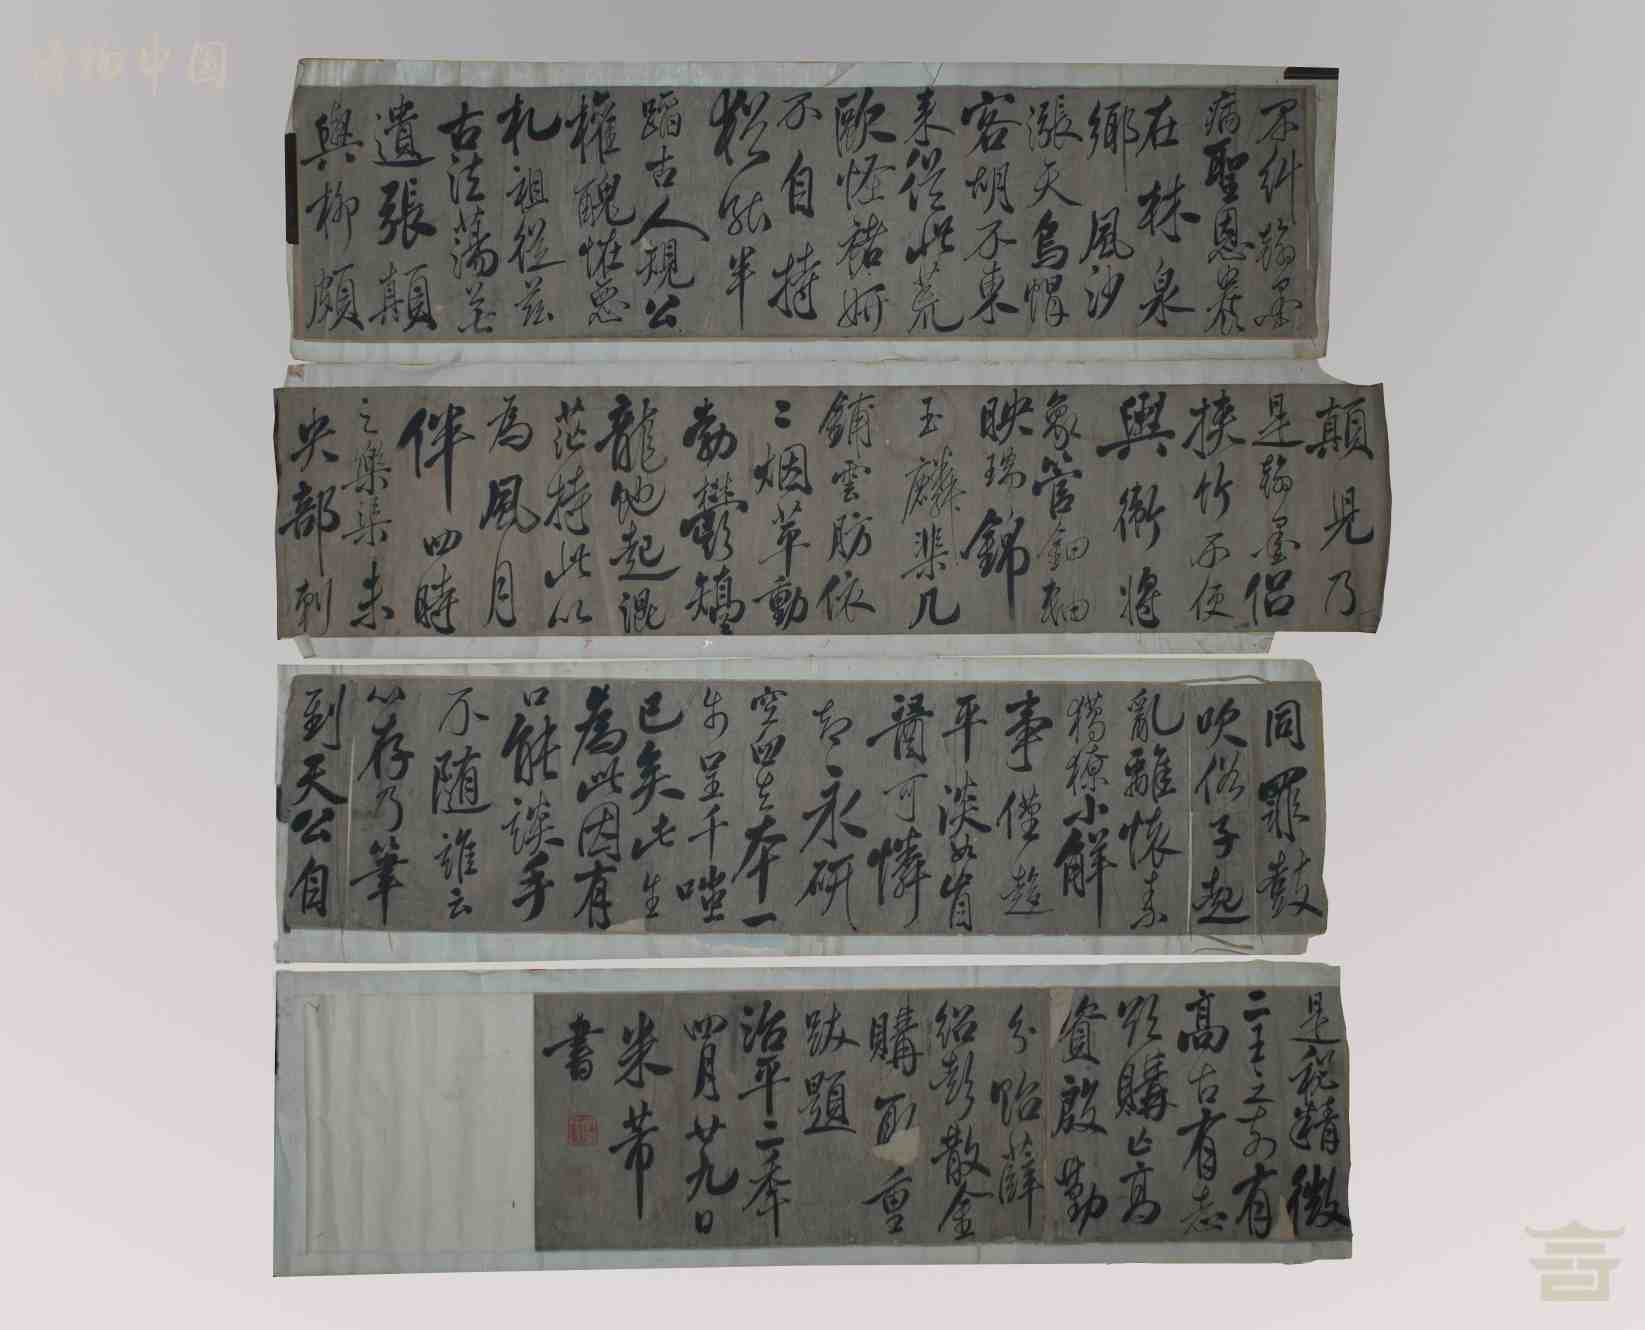 糾翰墨
病聖恩養
在林泉
鄉風沙
漲天烏帽
客胡不東
來從此荒
歐怪褚妍
不自持
猶能半
蹈古人規公
權醜怪惡
札祖從茲
古法蕩無
遺張顛
與柳頗
顛兒乃
是翰墨侶
挾竹不使
輿衛將
象管鈿軸
映瑞錦
玉麟棐几
鋪雲肪依
二烟華動
勃鬱矯
龍蛇起混
茫持此以
為風月
伴四時
之樂渠未
央部刺
同罪鼓
吹俗子起
亂離懷素
獦獠小解
事僅趨
平淡如盲
醫可憐
智永研
空臼去本一
步呈千嗤
已矣此生
為此困有
口能談手
不隨誰云
心存乃筆
到天公自
是秘精微
二王之前有
高古有志
欲購亡高
貲殷勤
分貽薛
紹彭散金
購取重
跋題
治平二年
四月廿九日
米芾
書